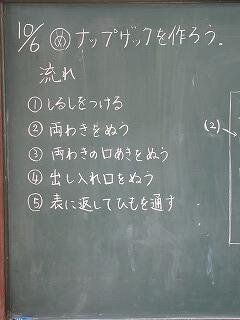 10/6 め ナップザックを作ろう.
流れ
① しるしをつける
② 両わきをぬう
③ 両わきの口あきをぬう
④ 出し入れ口をぬう
⑤ 表に返してひもを通す
(2)